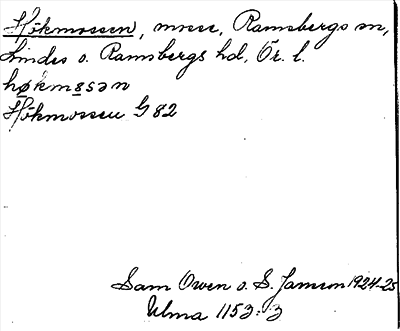 Hökmossen, mosse, Ramsbergs sn,
Lindes o. Ramsbergs hd, Ör. l.
høkmosən
Hökmossen G 82
Sam Owen o. S. Janson 1924-25
Ulma 1153:3